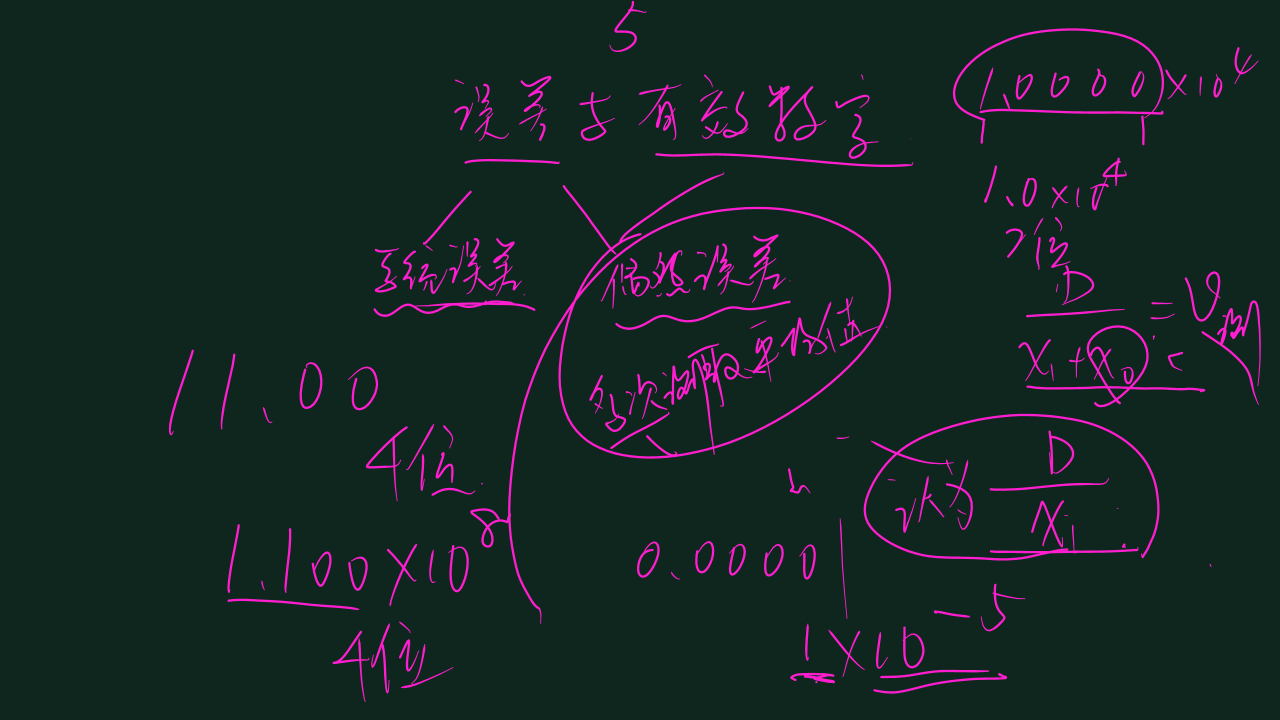 5
误差与有效数字
系统误差
偶然误差
多次测取平均值
11.00
4位
1.100×10⁸
4位
0.00001
1×10⁻⁵
1.0000×10⁴
1.0×10⁴
2位
D/(x₁+x₀) = v测
<
认为 D/x₁